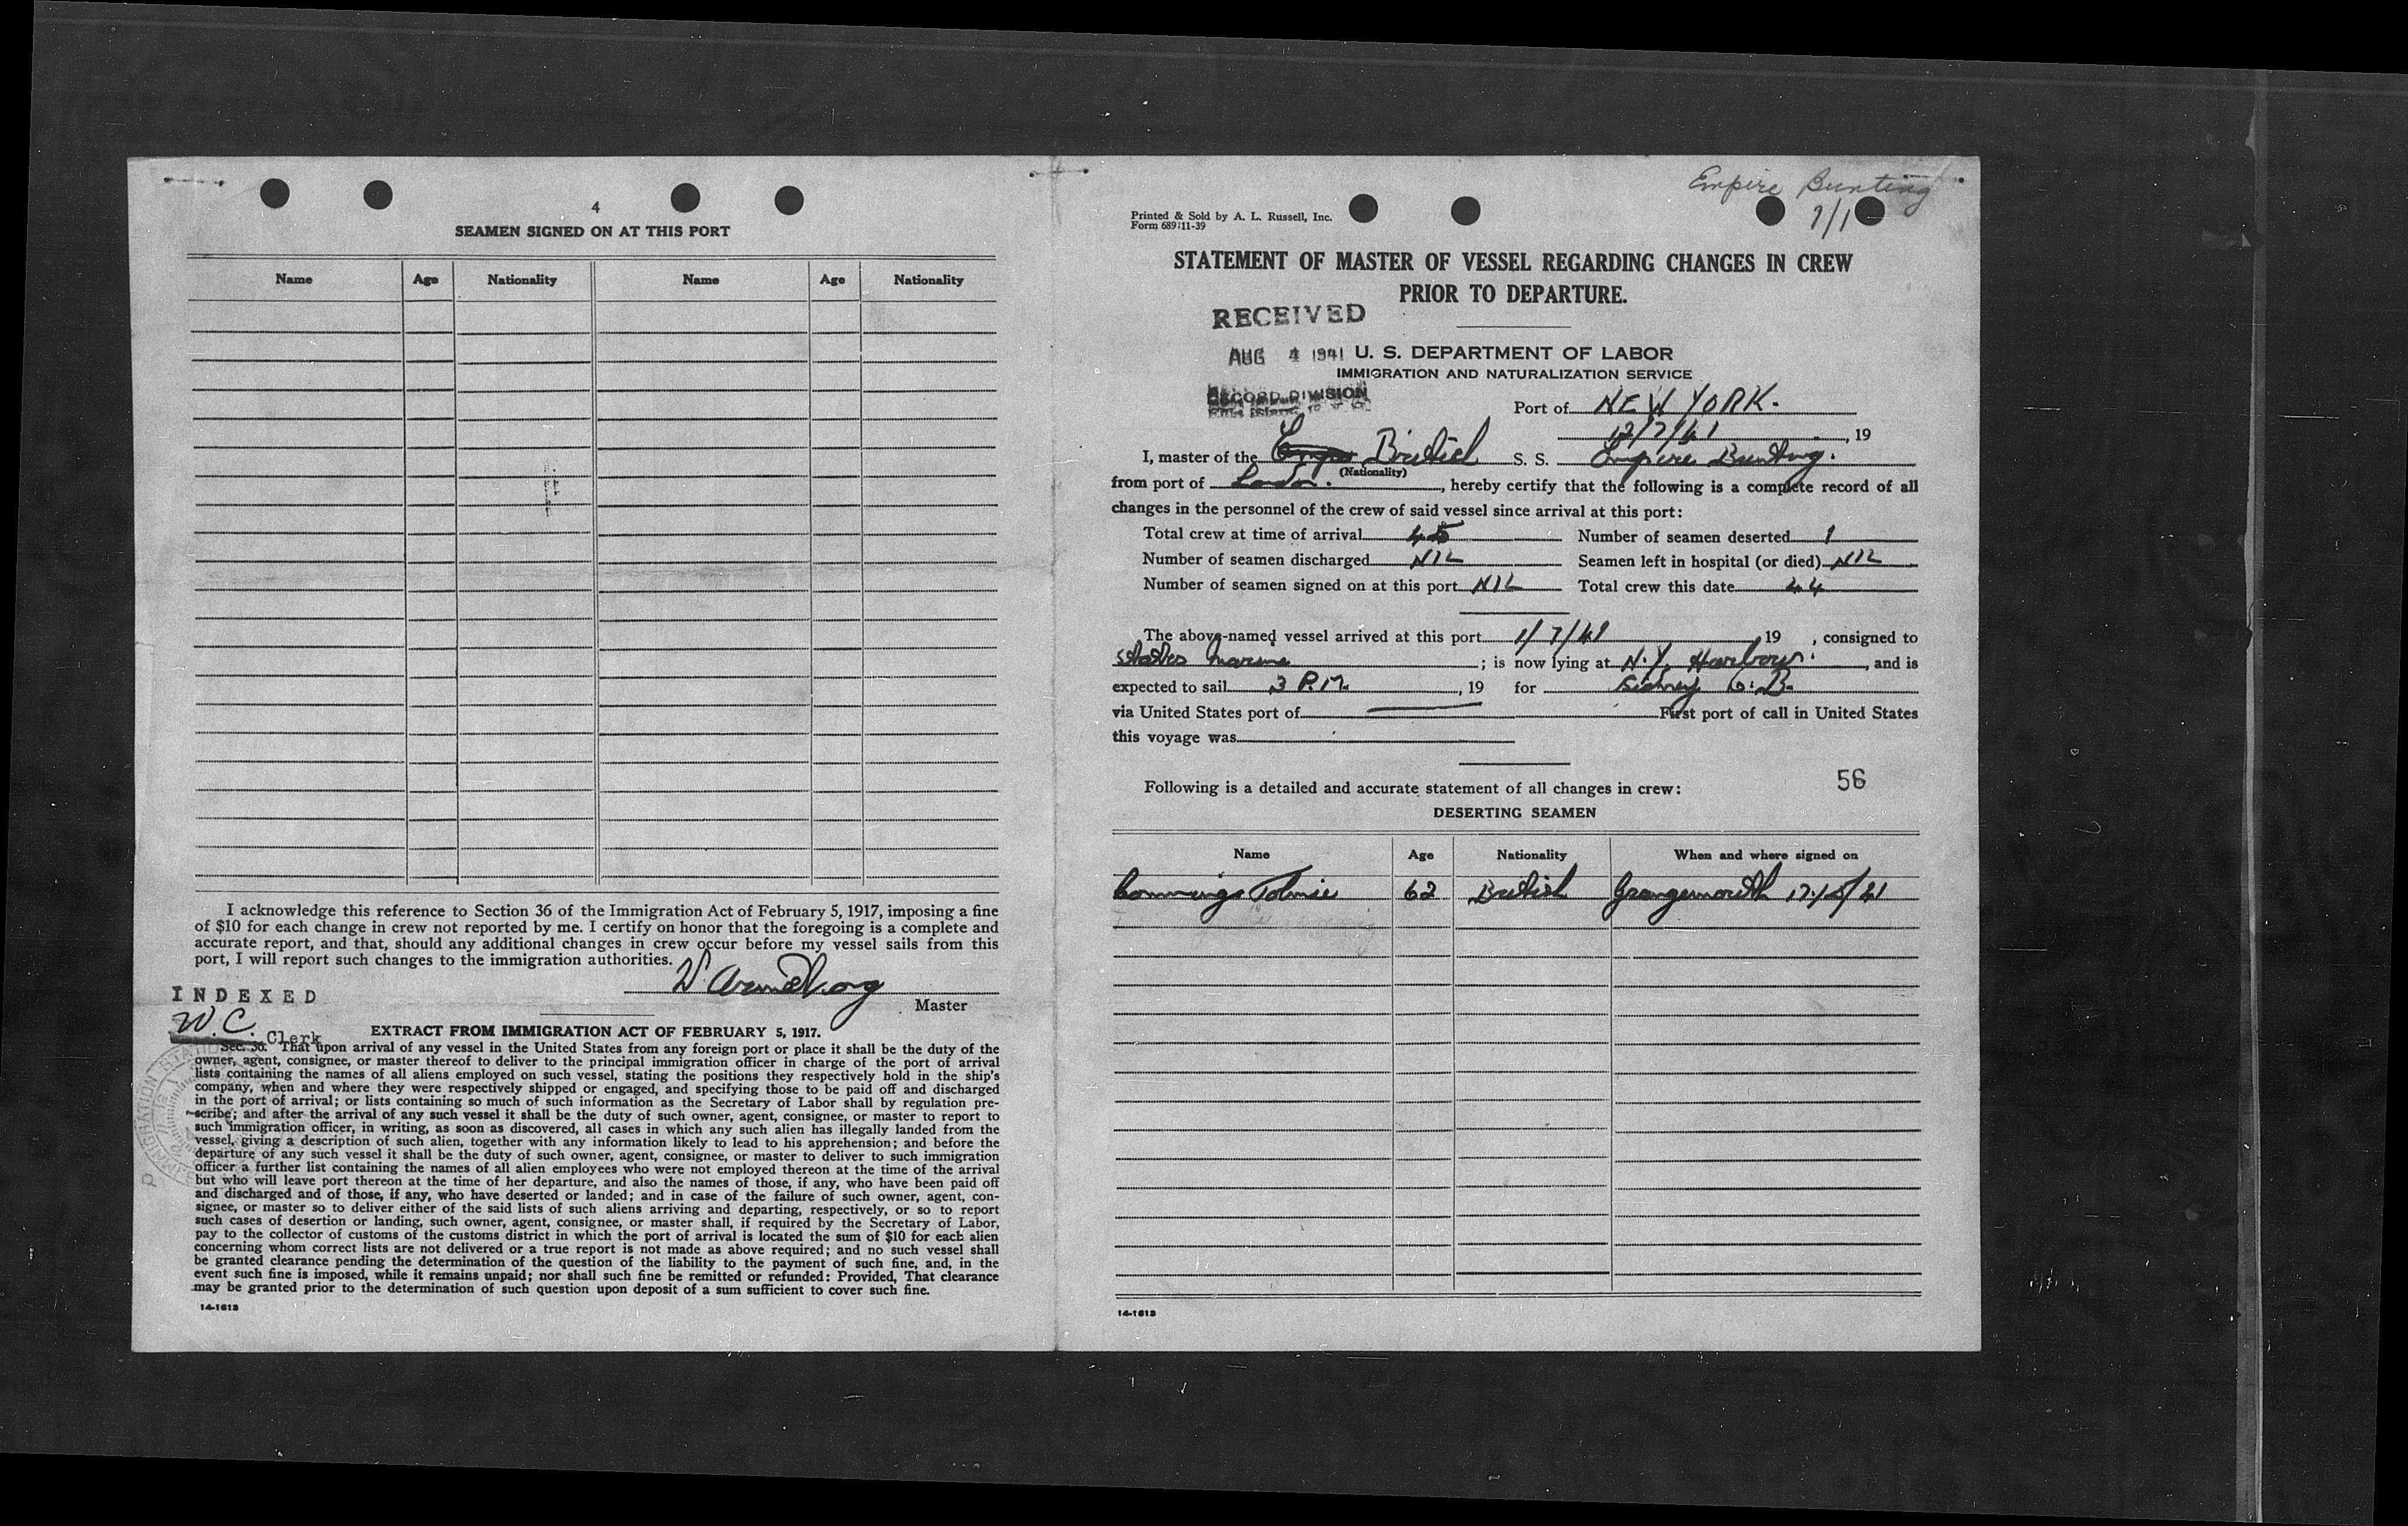 4
SEAMEN SIGNED ON AT THIS PORT
Name Age Nationality Name Age Nationality
I acknowledge this reference to Section 36 of the Immigration Act of February 5, 1917, imposing a fine
of $10 for each change in crew not reported by me. I certify on honor that the foregoing is a complete and
accurate report, and that, should any additional changes in crew occur before my vessel sails from this
port, I will report such changes to the immigration authorities.
W. Armstrong
Master
INDEXED
W.C. Clerk
EXTRACT FROM IMMIGRATION ACT OF FEBRUARY 5, 1917.
Sec. 36. That upon arrival of any vessel in the United States from any foreign port or place it shall be the duty of the
owner, agent, consignee, or master thereof to deliver to the principal immigration officer in charge of the port of arrival
lists containing the names of all aliens employed on such vessel, stating the positions they respectively hold in the ship's
company, when and where they were respectively shipped or engaged, and specifying those to be paid off and discharged
in the port of arrival; or lists containing so much of such information as the Secretary of Labor shall by regulation pre-
scribe; and after the arrival of any such vessel it shall be the duty of such owner, agent, consignee, or master to report to
such immigration officer, in writing, as soon as discovered, all cases in which any such alien has illegally landed from the
vessel, giving a description of such alien, together with any information likely to lead to his apprehension; and before the
departure of any such vessel it shall be the duty of such owner, agent, consignee, or master to deliver to such immigration
officer a further list containing the names of all alien employees who were not employed thereon at the time of the arrival
but who will leave port thereon at the time of her departure, and also the names of those, if any, who have been paid off
and discharged and of those, if any, who have deserted or landed; and in case of the failure of such owner, agent, con-
signee, or master so to deliver either of the said lists of such aliens arriving and departing, respectively, or so to report
such cases of desertion or landing, such owner, agent, consignee, or master shall, if required by the Secretary of Labor,
pay to the collector of customs of the customs district in which the port of arrival is located the sum of $10 for each alien
concerning whom correct lists are not delivered or a true report is not made as above required; and no such vessel shall
be granted clearance pending the determination of the question of the liability to the payment of such fine, and, in the
event such fine is imposed, while it remains unpaid; nor shall such fine be remitted or refunded: Provided, That clearance
may be granted prior to the determination of such question upon deposit of a sum sufficient to cover such fine.
14-1613
Empire Bunting
7/1
Printed & Sold by A. L. Russell, Inc.
Form 689:11-39
STATEMENT OF MASTER OF VESSEL REGARDING CHANGES IN CREW
PRIOR TO DEPARTURE.
RECEIVED
AUG 4 1941 U. S. DEPARTMENT OF LABOR
IMMIGRATION AND NATURALIZATION SERVICE
RECORD DIVISION
Port of NEW YORK.
12/7/41, 19
I, master of the British S. S. Empire Bunting.
(Nationality)
from port of London., hereby certify that the following is a complete record of all
changes in the personnel of the crew of said vessel since arrival at this port:
Total crew at time of arrival 45 Number of seamen deserted 1
Number of seamen discharged NIL Seamen left in hospital (or died) NIL
Number of seamen signed on at this port NIL Total crew this date 44
The above-named vessel arrived at this port 1/7/41 19 , consigned to
States Marine ; is now lying at N.Y. Harbour. , and is
expected to sail 3 P.M. , 19 for Sidney C.B.
via United States port of First port of call in United States
this voyage was
56
Following is a detailed and accurate statement of all changes in crew:
DESERTING SEAMEN
Name Age Nationality When and where signed on
Cummings Tolmie 62 British Grangemouth 17/5/41
14-1613